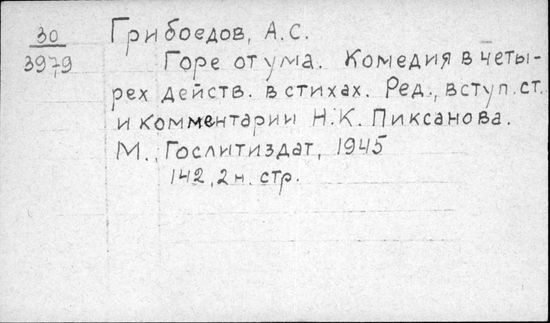 30 Грибоедов, А.С.
3979 Горе от ума. Комедия в четы-
рех действ. в стихах. Ред., вступ. ст.
и комментарии Н.К. Пиксанова.
М., Гослитиздат, 1945
142, 2 н. стр.